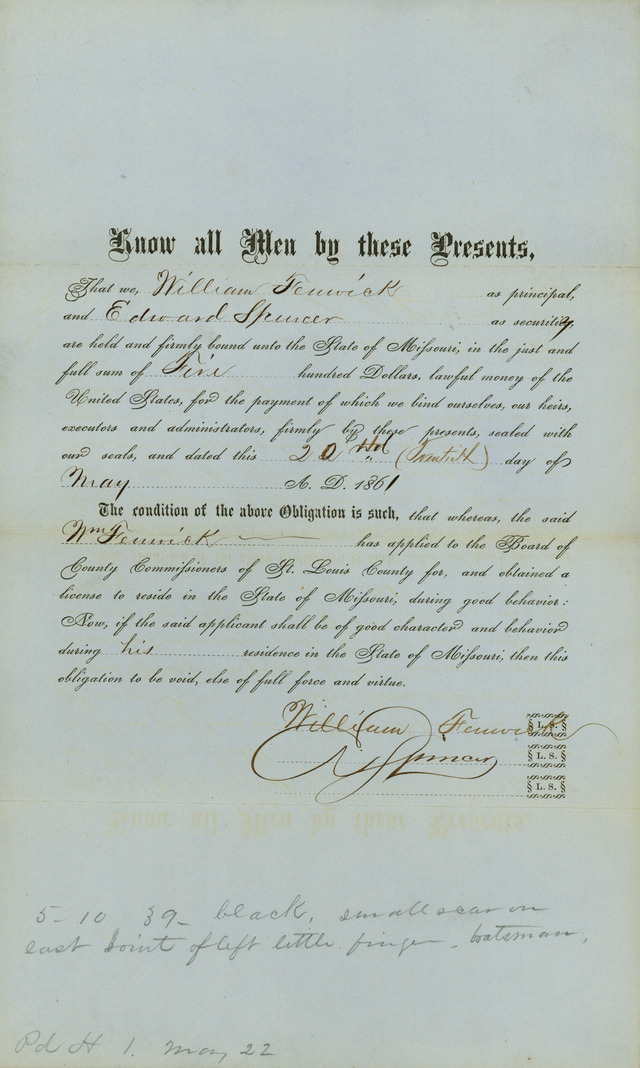 Know all Men by these Presents,
That we, William Fenwick as principal,
and Edward Spencer as security,
are held and firmly bound unto the State of Missouri, in the just and
full sum of Five hundred Dollars, lawful money of the
United States, for the payment of which we bind ourselves, our heirs,
executors and administrators, firmly by these presents, sealed with
our seals, and dated this 20 (Twentieth) day of
May A. D. 1861
The condition of the above Obligation is such, that whereas, the said
Wm Fenwick has applied to the Board of
County Commissioners of St. Louis County for, and obtained a
license to reside in the State of Missouri, during good behavior:
Now, if the said applicant shall be of good character and behavior
during his residence in the State of Missouri, then this
obligation to be void, else of full force and virtue.
William Fenwick L. S.
Spencer L. S.
L. S.
5-10 39- black, small scar on
joint of left little finger. boatsman,
Pd H 1. May 22